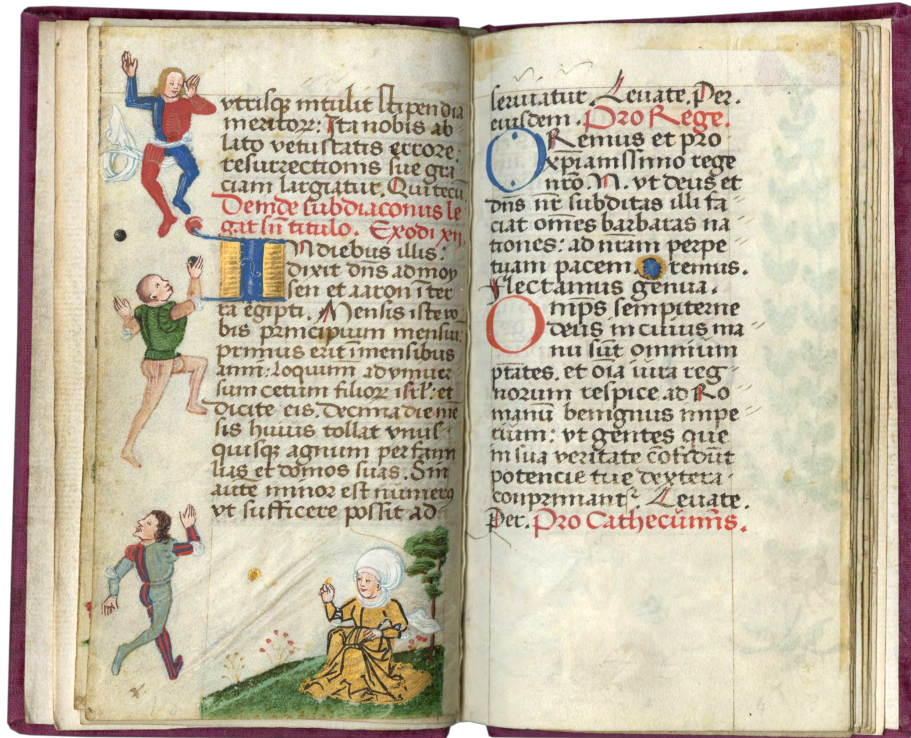 utrisqꝫ intulit stipendia
meritoꝝ: Ita nobis ab
lato vetustatis errore:
resurrectionis sue gra
ciam largiatur. Qui tecū
Deinde subdiaconus le
gat sn̄ titulo. Exodi xij.
IN diebus illis:
dixit dn̄s ad moy
sen et aaron ī ter
ra egipti. Mensis iste vo
bis principium mensiū:
primus erit ī mensibus
anni: loquim̄ ad vniuer
sum cetum filioꝝ isrl̄: et
dicite eis. Decima die mē
sis huius tollat vnus
quisqꝫ agnum per fami
lias et domos suas. Sin
autē minor est numerꝰ
vt sufficere possit ad
seruiatur Leuate. Per.
eiusdem. Pro Rege.
ORemus et pro
xp̄ianissimo rege
nr̄o. N. vt deus et
dn̄s nr̄ subditas illi fa
ciat om̄es barbaras na
tiones: ad nr̄am perpe
tuam pacem. Oremus.
flectamus genua.
Omp̄s sempiterne
deus in cuius ma
nu sūt omnium
ptātes. et oīa iura reg
norum respice ad Ro
manū benignus impe
rium: vt gentes que
in sua veritate cōfidūt
potencie tue dextera
conprimantᷣ Leuate.
Per. Pro Cathecūmīs.